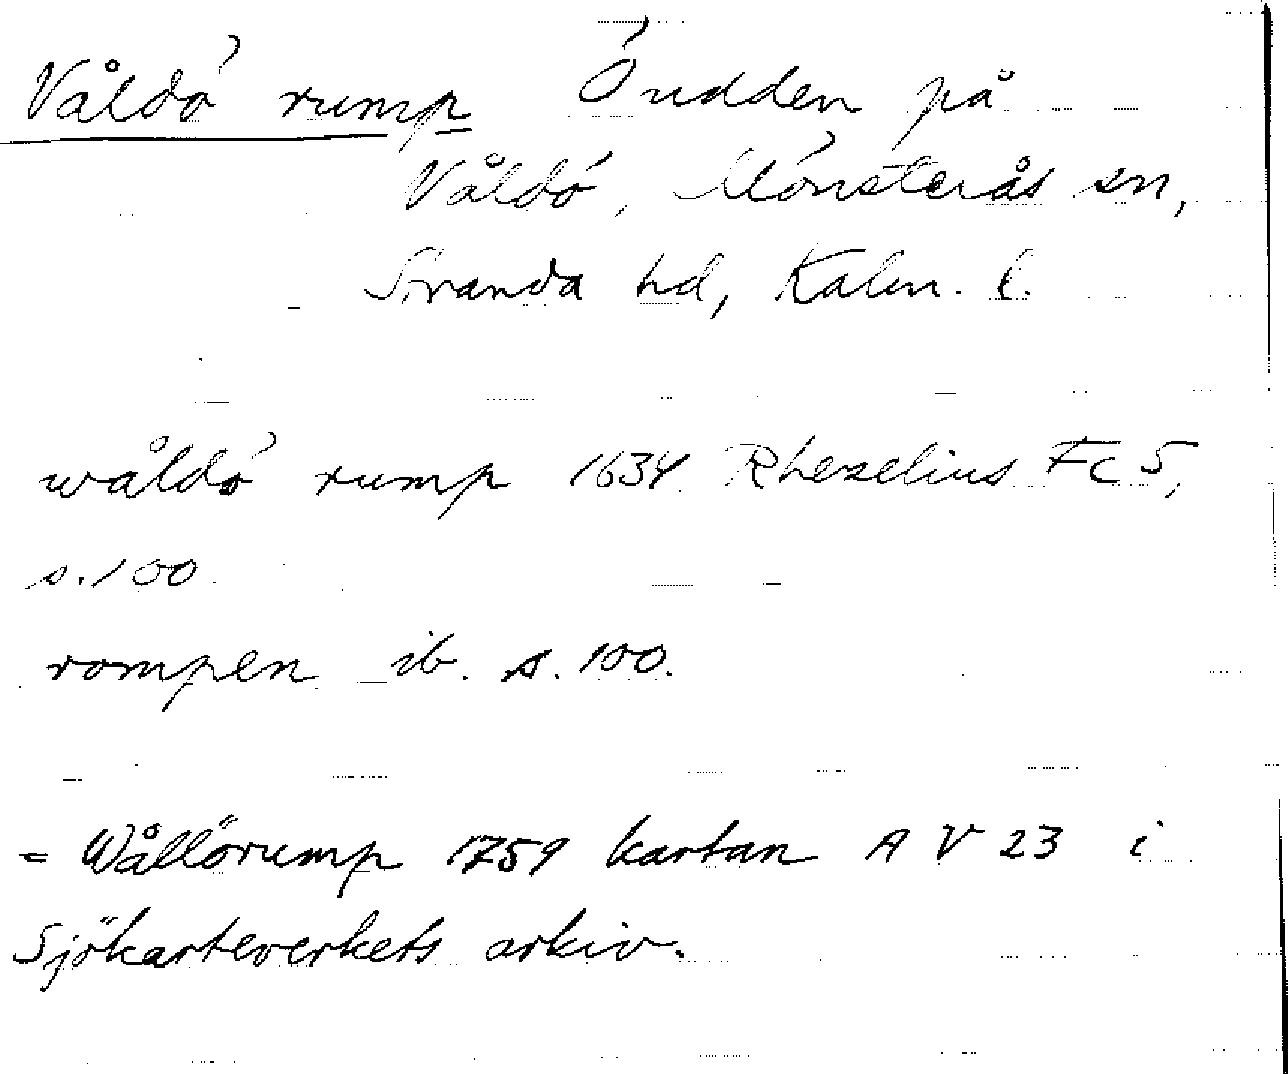 Våldö rump Ö udden på
Våldö, Mönsterås sn,
Stranda hd, Kalm. l.
wåldö rump 1634 Rhezelius Fc 5,
s. 100
rompen ib. s. 100.
= Wållörump 1759 kartan A V 23 i
Sjökarteverkets arkiv.